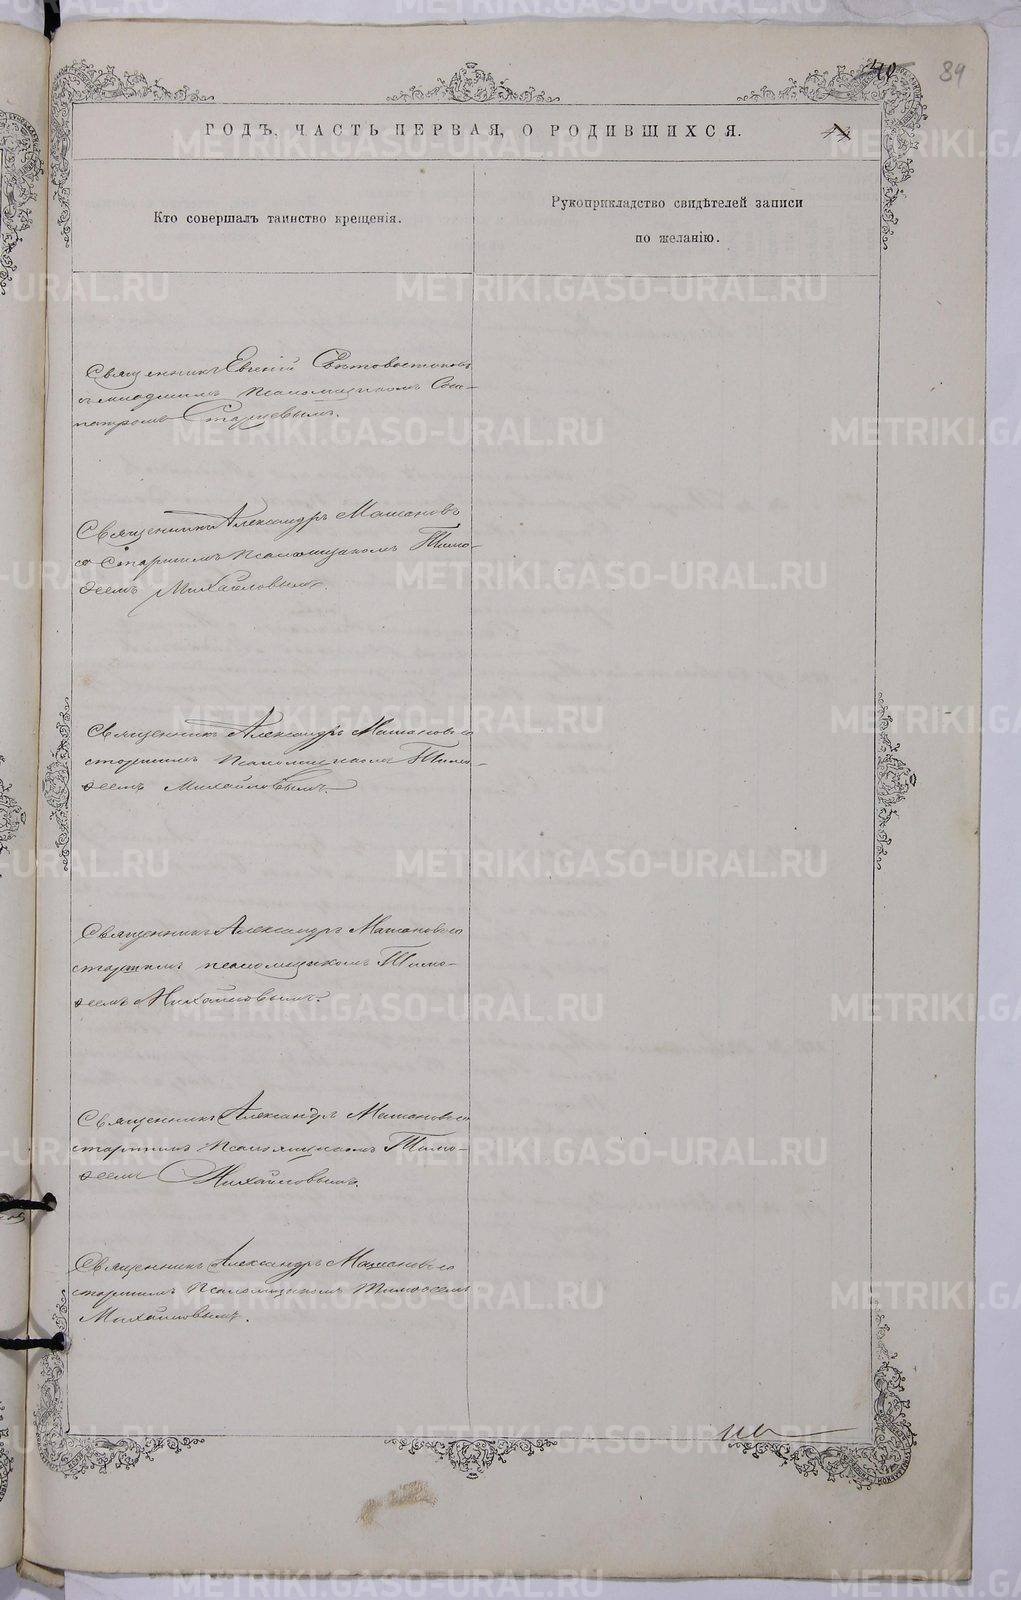 40
89
ГОДЪ, ЧАСТЬ ПЕРВАЯ, О РОДИВШИХСЯ.
Кто совершалъ таинство крещенія.
Рукоприкладство свидѣтелей записи
по желанію.
Священникъ Евгеній Свѣтовостоковъ
съ младшимъ псаломщикомъ Соси-
патромъ Старцевымъ.
Священникъ Александръ Машановъ
со старшимъ псаломщикомъ Тимо-
ѳеемъ Михайловымъ.
Священникъ Александръ Машановъ со
старшимъ псаломщикомъ Тимо-
ѳеемъ Михайловымъ.
Священникъ Александръ Машановъ со
старшимъ псаломщикомъ Тимо-
ѳеемъ Михайловымъ.
Священникъ Александръ Машановъ со
старшимъ псаломщикомъ Тимо-
ѳеемъ Михайловымъ.
Священникъ Александръ Машановъ со
старшимъ псаломщикомъ Тимоѳеемъ
Михайловымъ.
METRIKI.GASO-URAL.RU